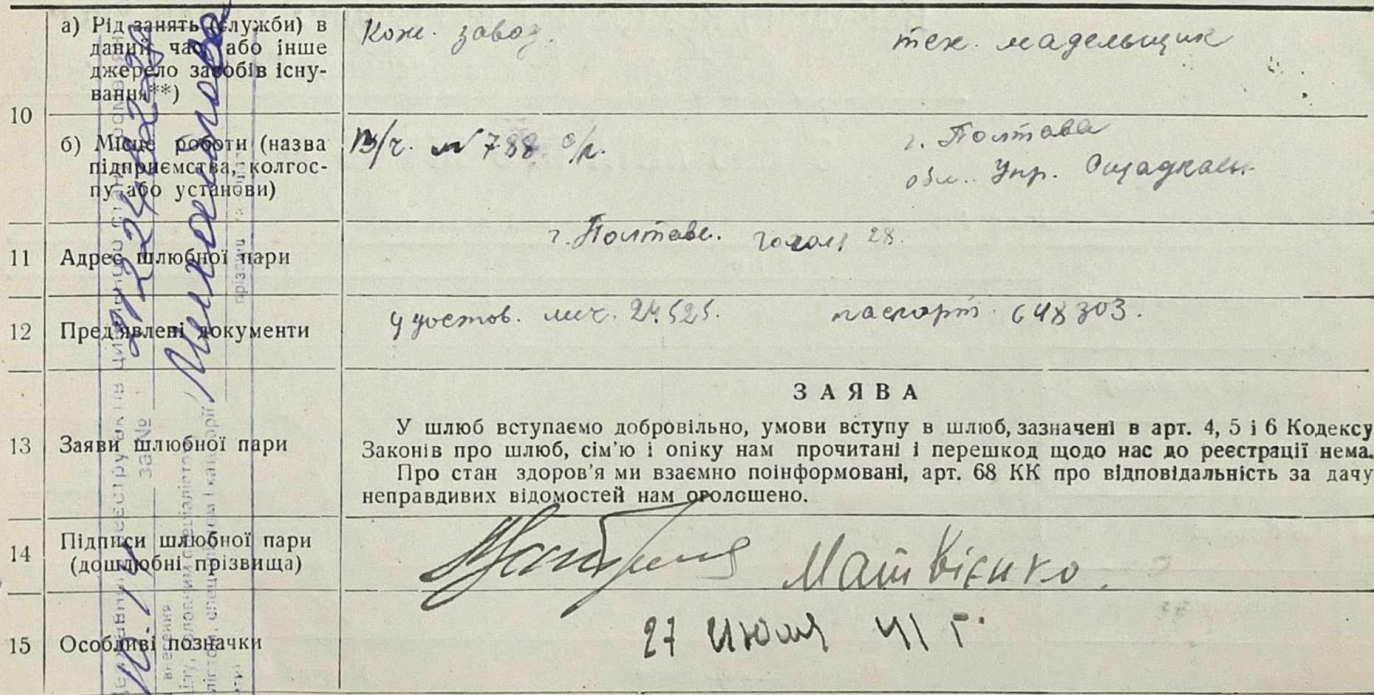 10
а) Рід занять (служби) в
даний час або інше
джерело засобів існу-
вання**)
Кож. завод.
тех. мадельщик
б) Місце роботи (назва
підприємства, колгос-
пу або установи)
В/ч. № 788 с/п.
г. Полтава
обл. Упр. Ощадкаси.
11
Адрес шлюбної пари
г. Полтава. Гоголя 28.
12
Пред'явлені документи
удостов. лич. 24.525.
паспорт. 648303.
13
Заяви шлюбної пари
ЗАЯВА
У шлюб вступаємо добровільно, умови вступу в шлюб, зазначені в арт. 4, 5 і 6 Кодексу
Законів про шлюб, сім'ю і опіку нам прочитані і перешкод щодо нас до реєстрації нема.
Про стан здоров'я ми взаємно поінформовані, арт. 68 КК про відповідальність за дачу
неправдивих відомостей нам оголошено.
14
Підписи шлюбної пари
(дошлюбні прізвища)
Матвієнко.
15
Особливі позначки
27 июня 41 г.
за №